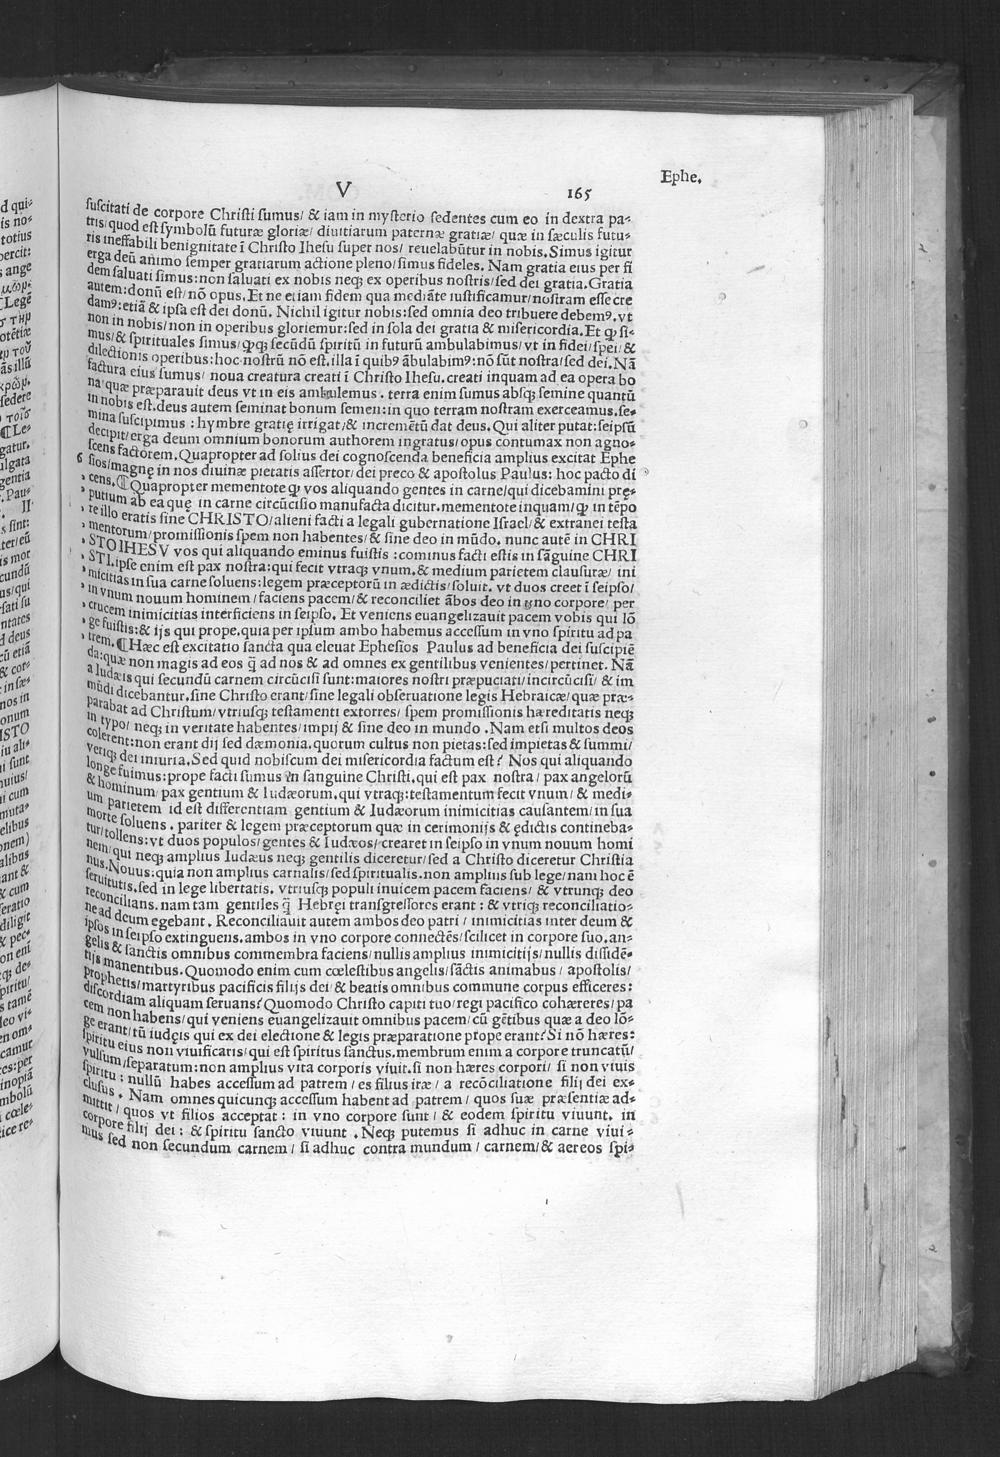 V
165
Ephe.
suscitati de corpore Christi sumus/ & iam in mysterio sedentes cum eo in dextra pa⸗
tris/quod est symbolū futuræ gloriæ/ diuitiarum paternæ gratiæ/ quæ in sæculis futu⸗
ris ineffabili benignitate ī Christo Ihesu super nos/ reuelabūtur in nobis.Simus igitur
erga deū animo semper gratiarum actione pleno/simus fideles. Nam gratia eius per fi
dem saluati simus:non saluati ex nobis neqꝫ ex operibus nostris/sed dei gratia.Gratia
autem:donū est/nō opus.Et ne etiam fidem qua mediāte iustificamur/nostram esse cre
damꝰ:etiā & ipsa est dei donū. Nichil igitur nobis:sed omnia deo tribuere debemꝰ.vt
non in nobis/non in operibus gloriemur:sed in sola dei gratia & misericordia.Et ꝙ si⸗
mus/& spirituales simus/ꝙqꝫ secūdū spiritū in futurū ambulabimus/vt in fidei/spei/&
dilectionis operibus:hoc nostrū nō est.illa ī quibꝰ ābulabimꝰ:nō sūt nostra/sed dei.Nā
factura eius sumus/ noua creatura creati ī Christo Ihesu.creati inquam ad ea opera bo
na quæ præparauit deus vt in eis ambulemus. terra enim sumus absqꝫ semine quantū
in nobis est.deus autem seminat bonum semen:in quo terram nostram exerceamus.se⸗
mina suscipimus : hymbre gratię irrigat/& incremētū dat deus. Qui aliter putat:seipsū
decipit/erga deum omnium bonorum authorem ingratus/opus contumax non agno⸗
scens factorem.Quapropter ad solius dei cognoscenda beneficia amplius excitat Ephe
6 sios/magnę in nos diuinæ pietatis assertor/dei preco & apostolus Paulus: hoc pacto di
cens.¶Quapropter mementote ꝙ vos aliquando gentes in carne/qui dicebamini prę⸗
putium ab ea quę in carne circūcisio manufacta dicitur.mementote inquam/ꝙ in tēpo
re illo eratis sine CHRISTO/alieni facti a legali gubernatione Israel/& extranei testa
mentorum/promissionis spem non habentes/& sine deo in mūdo. nunc autē in CHRI
STO IHESV vos qui aliquando eminus fuistis :cominus facti estis in sāguine CHRI
STI.ipse enim est pax nostra:qui fecit vtraqꝫ vnum.& medium parietem clausuræ/ ini
micitias in sua carne soluens:legem præceptorū in ædictis/soluit. vt duos creet ī seipso/
in vnum nouum hominem/faciens pacem/& reconciliet ābos deo in vno corpore/ per
crucem inimicitias interficiens in seipso. Et veniens euangelizauit pacem vobis qui lō
ge fuistis:& ijs qui prope.quia per ipsum ambo habemus accessum in vno spiritu ad pa
trem.¶Hæc est excitatio sancta qua eleuat Ephesios Paulus ad beneficia dei suscipiē
da:quæ non magis ad eos q̄ ad nos & ad omnes ex gentilibus venientes/pertinet. Nā
a Iudæis qui secundū carnem circūcisi sunt:maiores nostri præpuciati/incircūcisi/& im
mūdi dicebantur.sine Christo erant/sine legali obseruatione legis Hebraicæ/quæ præ⸗
parabat ad Christum/vtriusqꝫ testamenti extorres/ spem promissionis hæreditatis neqꝫ
in typo/ neqꝫ in veritate habentes/impij & sine deo in mundo .Nam etsi multos deos
colerent:non erant dij sed dæmonia.quorum cultus non pietas:sed impietas & summi/
veriqꝫ dei iniuria.Sed quid nobiscum dei misericordia factum est? Nos qui aliquando
longe fuimus:prope facti sumus in sanguine Christi.qui est pax nostra/ pax angelorū
& hominum/ pax gentium & Iudæorum.qui vtraqꝫ:testamentum fecit vnum/& medi⸗
um parietem id est differentiam gentium & Iudæorum inimicitias causantem/in sua
morte soluens . pariter & legem præceptorum quæ in cerimonijs & ędictis contineba⸗
tur/tollens:vt duos populos/gentes & Iudæos/crearet in seipso in vnum nouum homi
nem/ qui neqꝫ amplius Iudæus neqꝫ gentilis diceretur/sed a Christo diceretur Christia
nus.Nouus:quia non amplius carnalis/sed spiritualis.non amplius sub lege/nam hoc ē
seruitutis.sed in lege libertatis. vtriusqꝫ populi inuicem pacem faciens/ & vtrunqꝫ deo
reconcilians.nam tam gentiles q̄ Hebręi transgressores erant : & vtriqꝫ reconciliatio⸗
ne ad deum egebant. Reconciliauit autem ambos deo patri / inimicitias inter deum &
ipsos in seipso extinguens.ambos in vno corpore connectēs/scilicet in corpore suo.an⸗
gelis & sanctis omnibus commembra faciens/nullis amplius inimicitijs/nullis dissidē⸗
tijs manentibus.Quomodo enim cum cœlestibus angelis/sāctis animabus / apostolis/
prophetis/martyribus pacificis filijs dei/& beatis omnibus commune corpus efficeres:
discordiam aliquam seruans?Quomodo Christo capiti tuo/regi pacifico cohæreres/pa
cem non habens/qui veniens euangelizauit omnibus pacem/cū gētibus quæ a deo lō⸗
ge erant/tū iudęis qui ex dei electione & legis præparatione prope erant? Si nō hæres:
spiritu eius non viuificaris/qui est spiritus sanctus.membrum enim a corpore truncatū/
vulsum/separatum:non amplius vita corporis viuit.si non hæres corpori/ si non viuis
spiritu : nullū habes accessum ad patrem / es filius iræ / a recōciliatione filij dei ex⸗
clusus . Nam omnes quicunqꝫ accessum habent ad patrem / quos suæ præsentiæ ad⸗
mittit / quos vt filios acceptat : in vno corpore sunt / & eodem spiritu viuunt. in
corpore filij dei : & spiritu sancto viuunt .Neqꝫ putemus si adhuc in carne viui⸗
mus sed non secundum carnem / si adhuc contra mundum / carnem/& aereos spi⸗